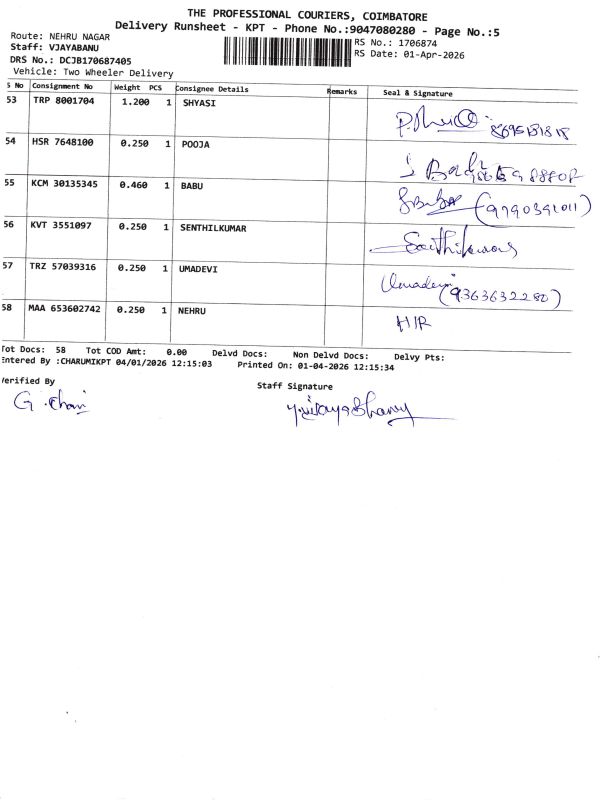 THE PROFESSIONAL COURIERS, COIMBATORE
Delivery Runsheet - KPT - Phone No.:9047080280 - Page No.:5
Route: NEHRU NAGAR
RS No.: 1706874
Staff: VJAYABANU
RS Date: 01-Apr-2026
DRS No.: DCJB170687405
Vehicle: Two Wheeler Delivery
S No Consignment No Weight PCS Consignee Details Remarks Seal & Signature
53 TRP 8001704 1.200 1 SHYASI
54 HSR 7648100 0.250 1 POOJA
55 KCM 30135345 0.460 1 BABU
56 KVT 3551097 0.250 1 SENTHILKUMAR
57 TRZ 57039316 0.250 1 UMADEVI Umadevi (9363632280)
58 MAA 653602742 0.250 1 NEHRU HIR
Tot Docs: 58 Tot COD Amt: 0.00 Delvd Docs: Non Delvd Docs: Delvy Pts:
Entered By :CHARUMIKPT 04/01/2026 12:15:03 Printed On: 01-04-2026 12:15:34
Verified By
Staff Signature